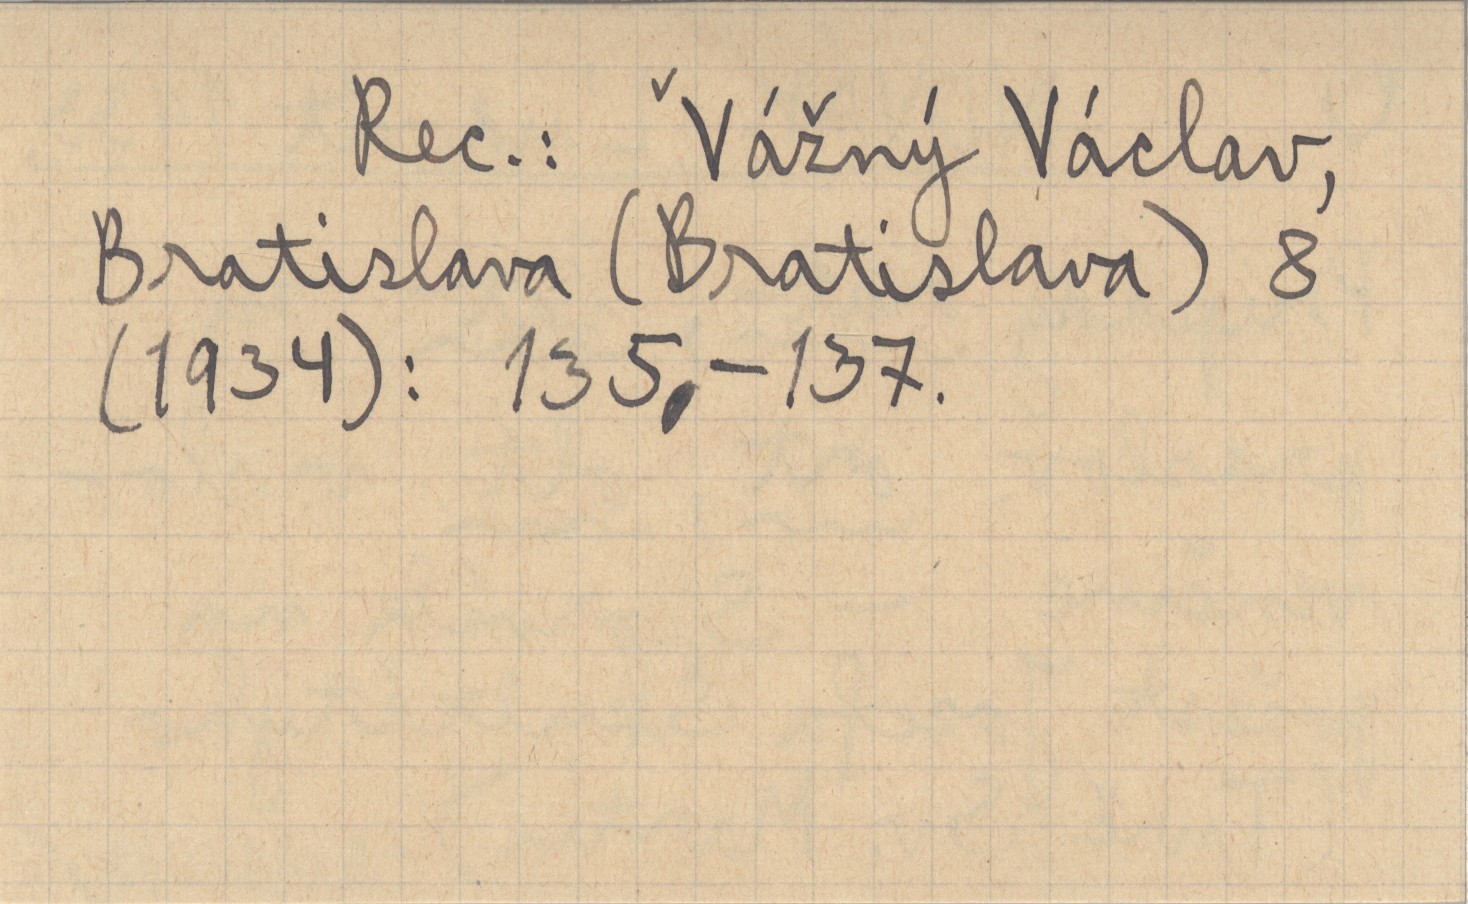 Rec.: Vážný Václav,
Bratislava (Bratislava) 8
(1934): 135,-137.